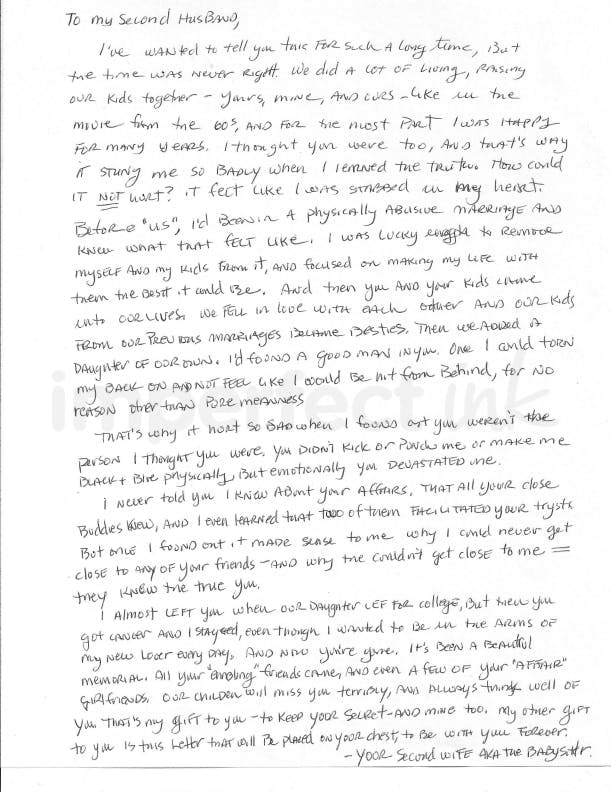 To my Second HusBAND,
I've wANTed to tell you this FOR such A long time, But
the time was never Right. We did A lot of living, Raising
our kids together - yours, mine, AND ours - like in the
movie from the 60s, AND FOR the most part I was HAPPY
FOR many years. I thought you were too, And that's why
it stung me so Badly when I learned the truth. How could
IT NOT hurt? it felt like I was stabbed in my heart.
Before "us", I'd Been in A physically Abusive marriage AND
knew what that felt like. I was lucky enough to Remove
myself And my kids from it, AND focused on making my life with
them the Best it could be. And then you AND your kids came
into our lives. We fell in love with each other AND our kids
from our previous marriages became Besties. Then we Added A
Daughter of our own. I'd found A good man in you. One I could turn
my back on AND not feel like I would be hit from Behind, for no
reason other than pure meanness
imperfect ink
THAT'S why it hurt so BAD when I found out you weren't the
person I thought you were. You DIDN'T kick or Punch me or make me
BLACK + Blue physically, But emotionally you DEVASTATED me.
I never told you I knew About your AFFAIRS, THAT All your close
Buddies knew, AND I even learned that two of them FACILITATED your trysts
But once I found out it made sense to me why I could never get
close to any of your friends - AND why the couldn't get close to me =
they knew the true you.
I Almost LEFT you when our Daughter LEF for college, But then you
got cancer AND I stayed, even though I wanted to be in the Arms of
my new lover every day. And now you're gone. It's Been A Beautiful
memorial. All your "enabling" friends came, And even A few of your "AFFAIR"
girlfriends. Our children will miss you terribly, And Always think well of
you. That's my gift to you - to keep your secret - AND mine too. My other gift
to you is this letter that will be placed on your chest, to be with you Forever.
- Your Second wife AKA the Babysitter.